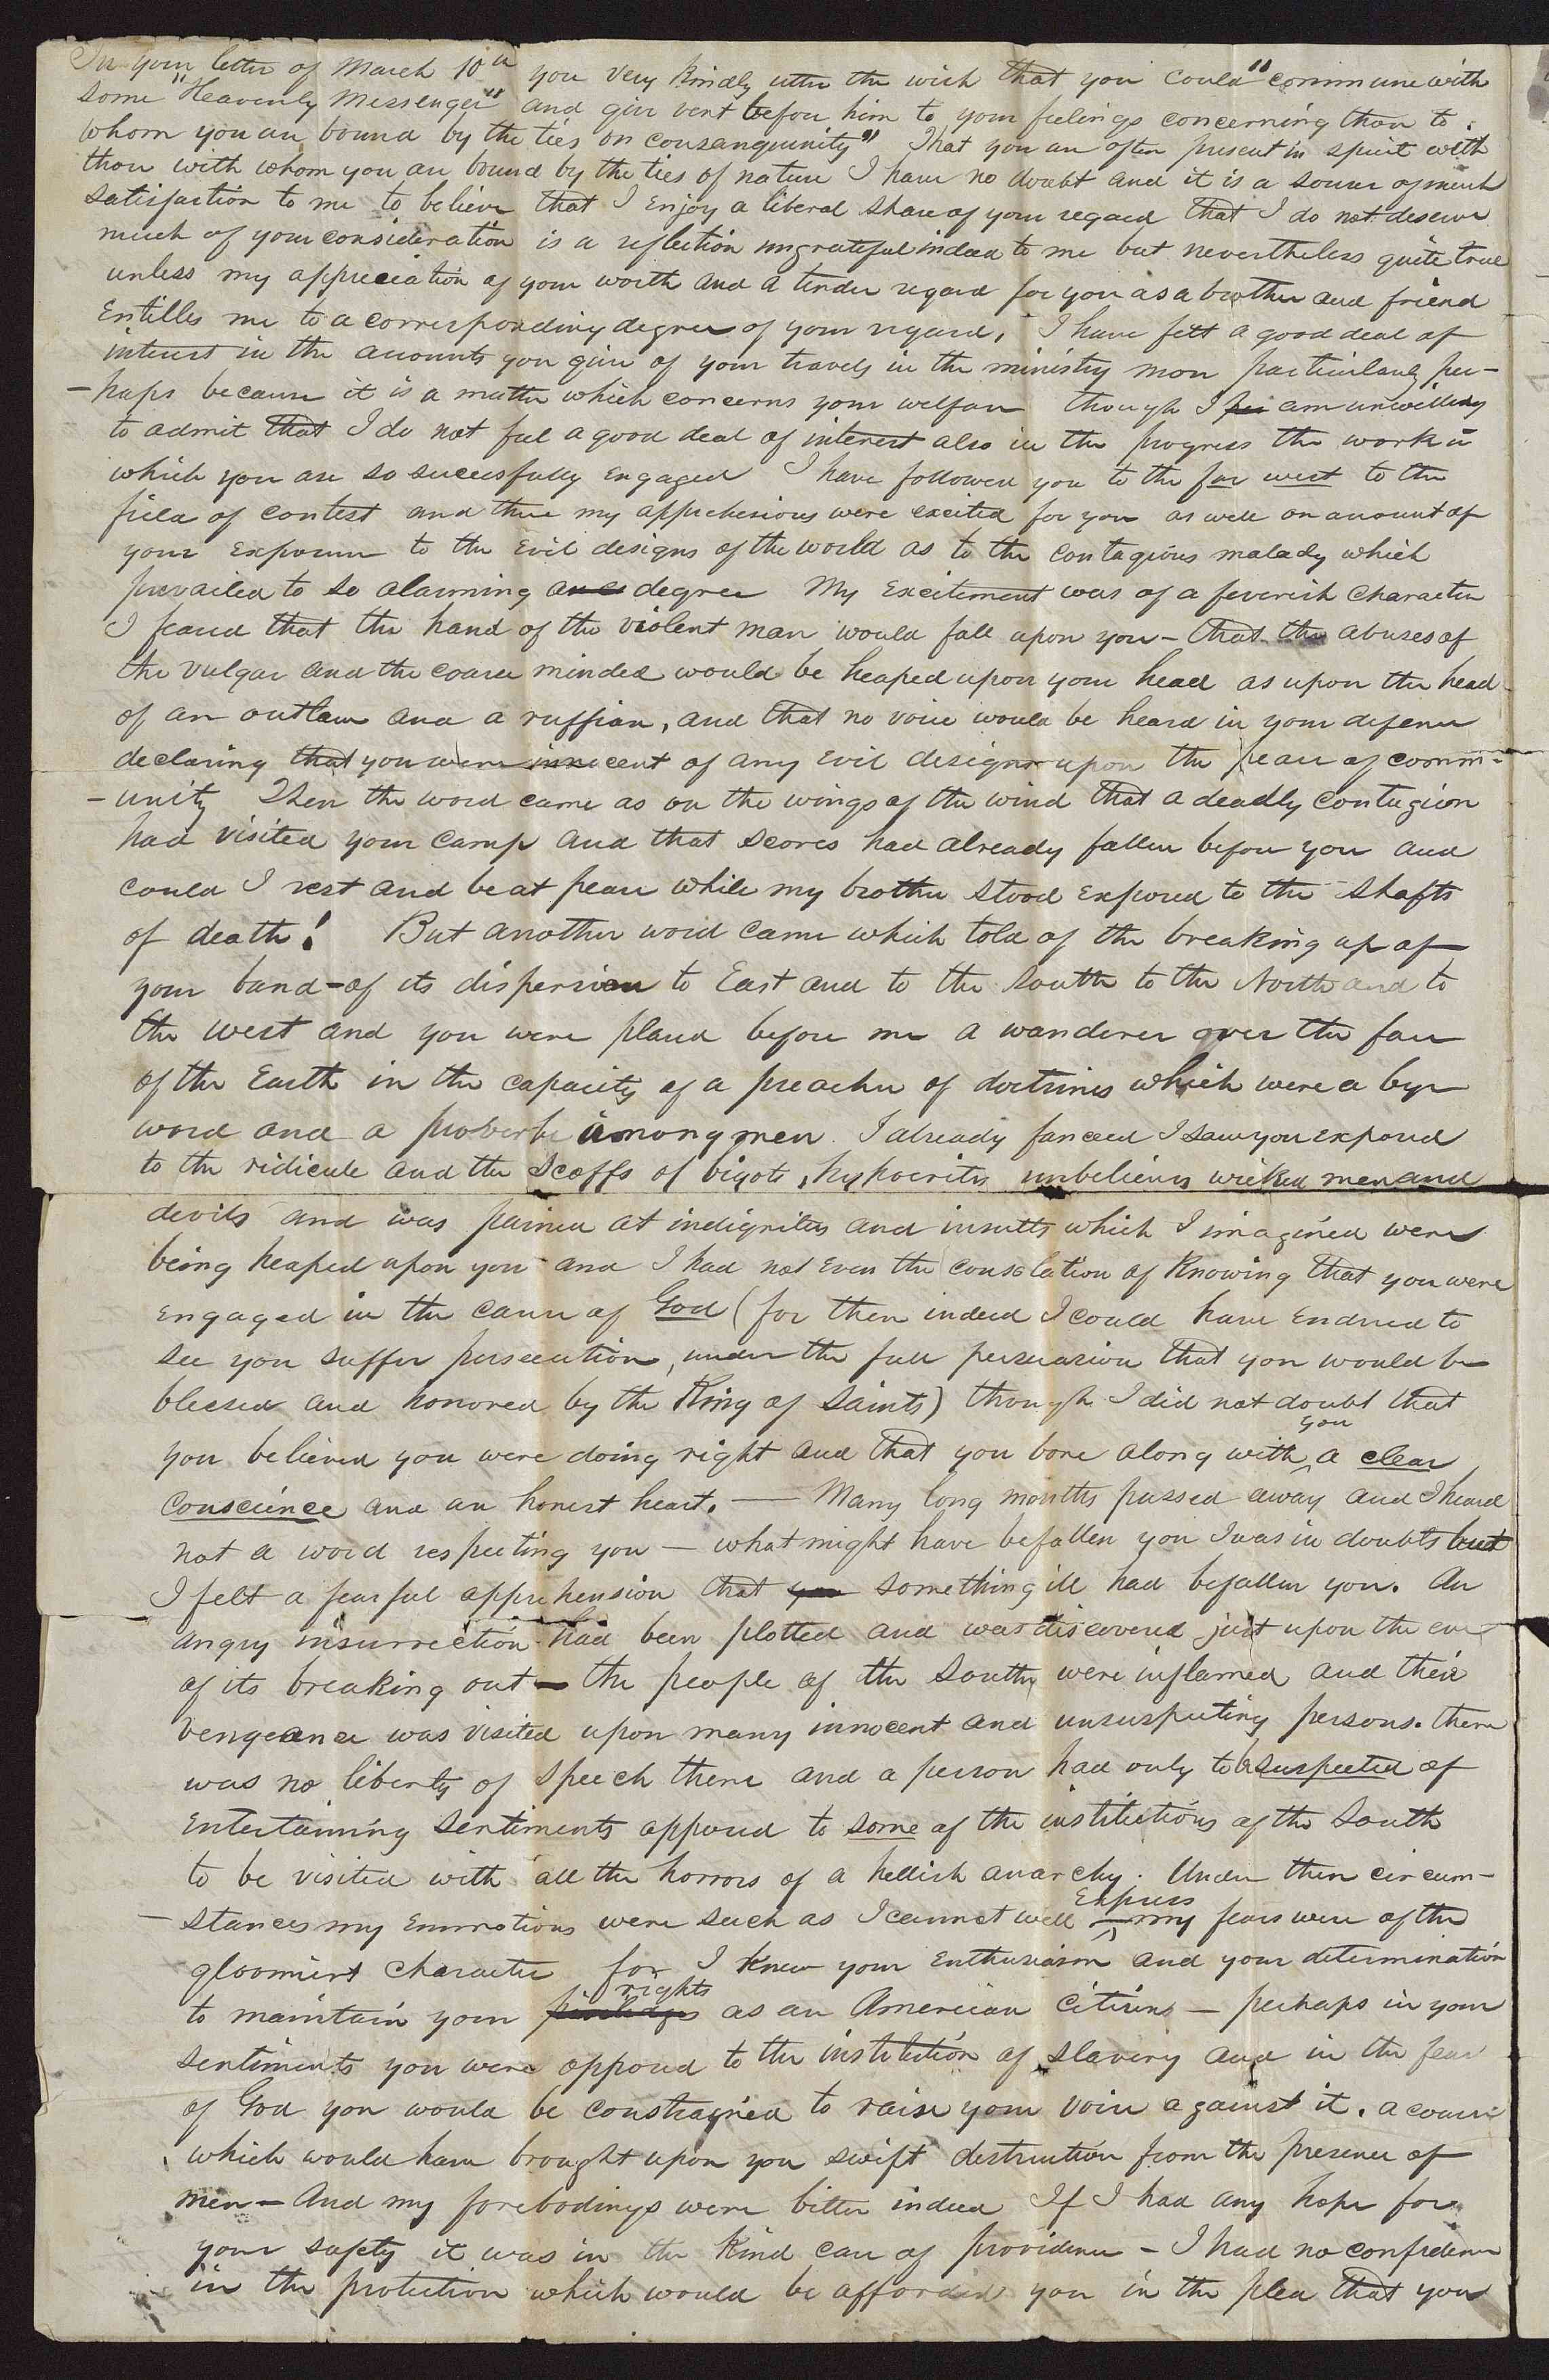 In your letter of March 10th you very kindly utter the wish that you could "commune with
some "Heavenly Messenger" and give vent before him to your feelings concerning those to
whom you are bound by the ties on consanguinity" That you are often present in spirit with
those with whom you are bound by the ties of nature I have no doubt and it is a source of much
satisfaction to me to believe that I enjoy a liberal share of your regard that I do not deserve
much of your consideration is a reflection ungrateful indeed to me but nevertheless quite true
unless my appreciation of your worth and a tender regard for you as a brother and friend
Entitles me to a corresponding degree of your regard. I have felt a good deal of
interest in the accounts you give of your travels in the ministry more particularly per-
-haps because it is a matter which concerns your welfare though I am unwilling
to admit that I do not feel a good deal of interest also in the progress the work in
which you are so successfully engaged I have followed you to the far west to the
field of contest and there my apprehensions were excited for you as well on account of
your exposure to the Evil designs of the world as to the contagious malady which
prevailed to so alarming a degree My Excitement was of a feverish character
I feared that the hand of the violent man would fall upon you - that the abuses of
the vulgar and the coarse minded would be heaped upon your head as upon the head
of an outlaw and a ruffian, and that no voice would be heard in your defence
declaring that you were innocent of any Evil designs upon the peace of comm-
-unity Then the word came as on the wings of the wind that a deadly contagion
had visited your camp and that scores had already fallen before you and
could I rest and be at peace while my brother stood exposed to the shafts
of death! But another word came which told of the breaking up of
your band - of its dispersion to East and to the South to the North and to
the west and you were placed before me a wanderer over the face
of the Earth in the capacity of a preacher of doctrines which were a bye
word and a proverb among men. I already fancied I saw you exposed
to the ridicule and the scoffs of bigots, hypocrites unbelievers wicked men and
devils and was pained at indignities and insults which I imagined were
being heaped upon you and I had not Even the consolation of Knowing that you were
Engaged in the cause of God (for then indeed I could have Endured to
see you suffer persecution, under the full persuasion that you would be
blessed and honored by the King of Saints) though I did not doubt that
you believed you were doing right and that you bore along with you a clear
conscience and an honest heart. — Many long months passed away and I heard
not a word respecting you — what might have befallen you I was in doubts but
I felt a fearful apprehension that something ill had befallen you. An
angry insurrection had been plotted and was discovered just upon the eve
of its breaking out — the people of the South were inflamed and their
vengeance was visited upon many innocent and unsuspecting persons. there
was no liberty of speech there and a person had only to be suspected of
Entertaining sentiments opposed to some of the institutions of the South
to be visited with all the horrors of a hellish anarchy. Under these circum-
-stances my Emmotions were such as I cannot well Express my fears were of the
gloomiest character for I knew your Enthusiasm and your determination
to maintain your rights as an American Citizens — perhaps in your
sentiments you were opposed to the institution of slavery and in the fear
of God you would be constrained to raise your voice against it. a course
which would have brought upon you swift destruction from the presence of
men - And my forebodings were bitter indeed If I had any hope for
your safety it was in the Kind care of providence - I had no confidence
in the protection which would be afforded you in the plea that you